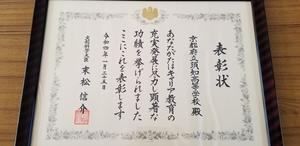 表彰状
京都府立須知高等学校殿
あなたがたはキャリア教育の
充実発展に尽力し顕著な
功績を挙げられました
ここにこれを表彰します
令和四年一月二十五日
文部科学大臣 末松信介